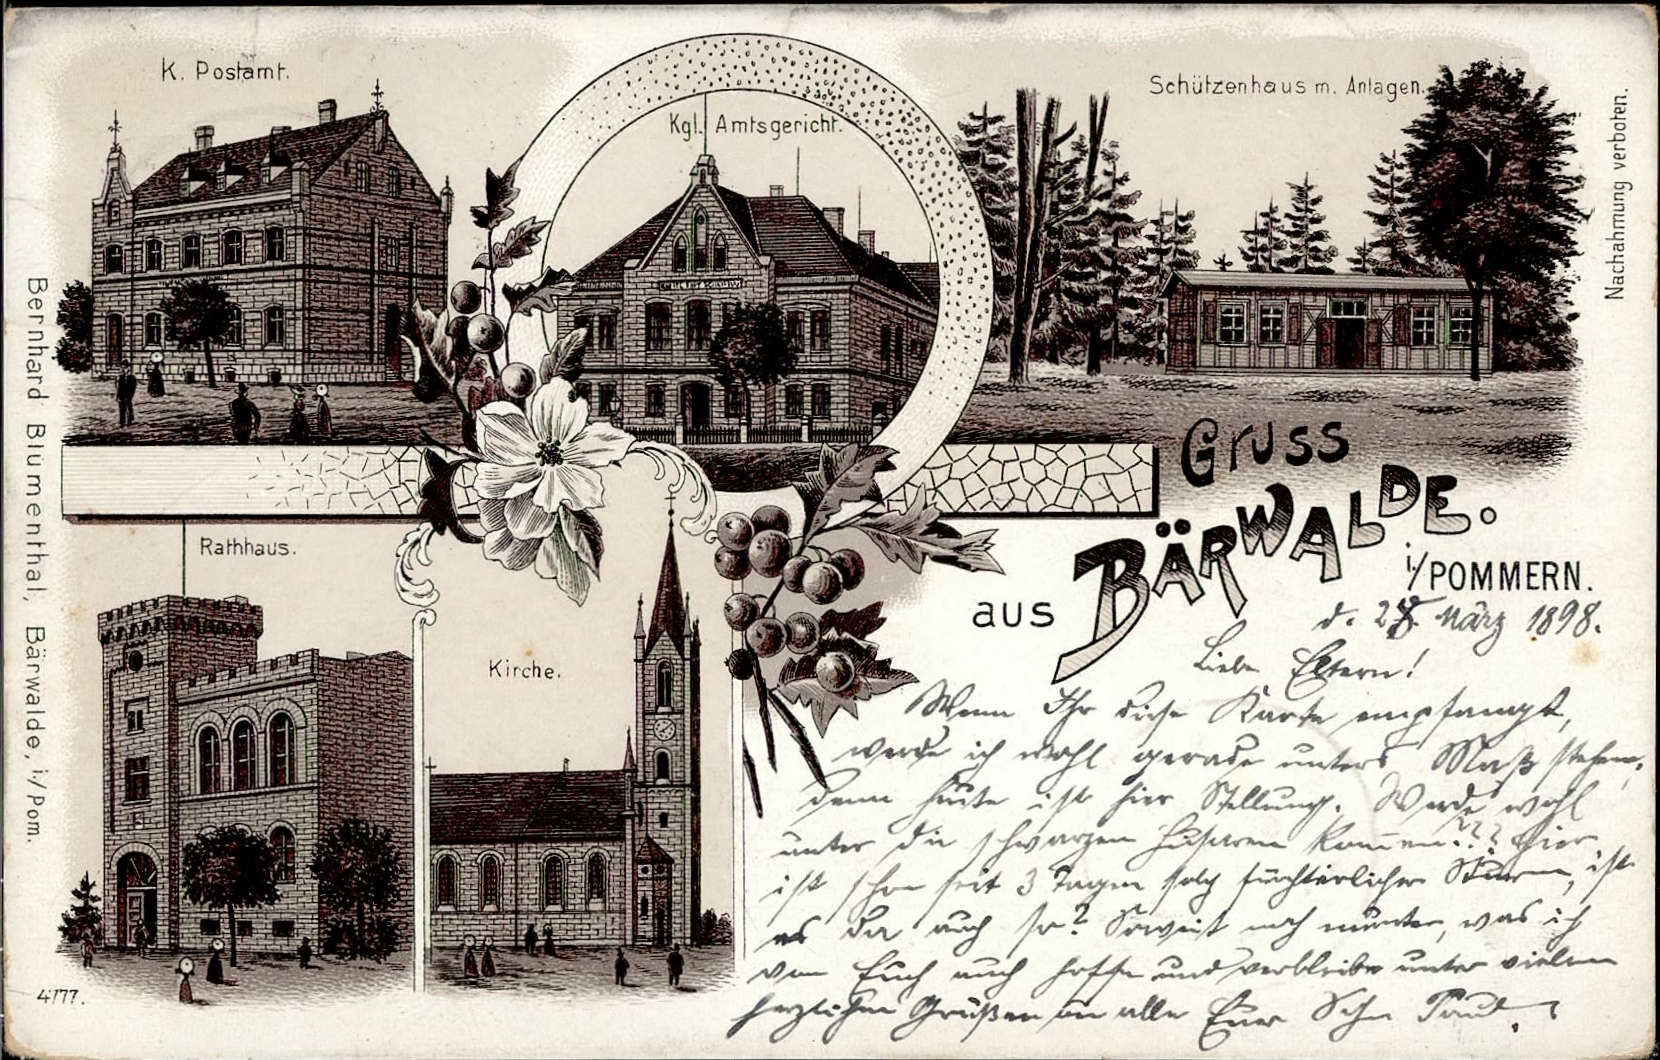 K. Postamt.
Kgl. Amtsgericht.
Schützenhaus m. Anlagen.
Nachahmung verboten.
Bernhard Blumenthal, Bärwalde, i/Pom.
Gruss
aus BÄRWALDE.
i./POMMERN.
Rathhaus.
Kirche.
4777.
d. 28. März 1898.
Liebe Eltern!
Wenn Ihr diese Karte empfangt,
werde ich wohl gerade unters Maß stehen,
denn heute ist hier Stellung. Werde wohl
unter die schwarzen Husaren kommen??? Hier
ist schon seit 3 Tagen solch fürchterlicher Sturm, ist
es da auch so? Soweit noch munter, was ich
von Euch auch hoffe und verbleibe unter vielen
herzlichen Grüßen an alle Euer Sohn Paul.